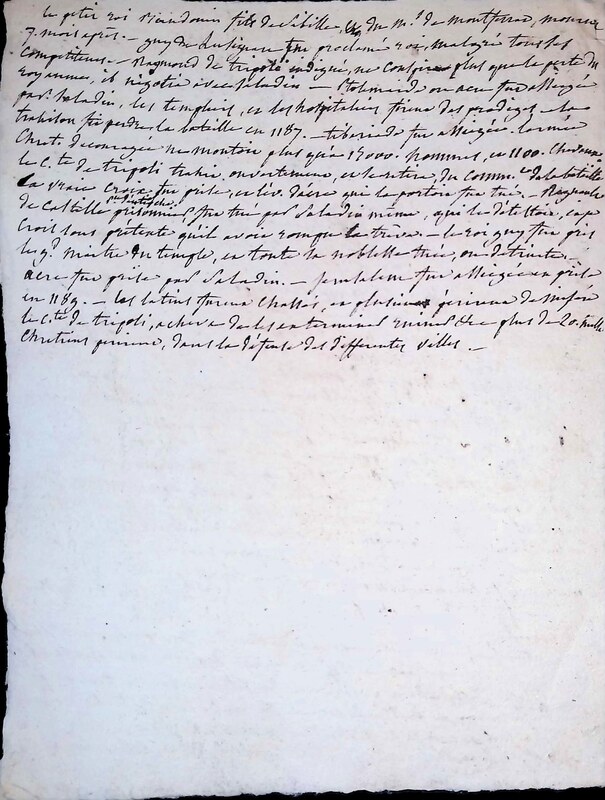 le petit roi Baudouin fils de Sibille et du m.is de montferrat, mourut
7. mois apres. — guy de Lusignan fut proclamé roi, malgré tous les
Competiteurs. — Raymond de tripoli indigné, ne Conspira plus que la perte du
royaume, et négotie avec Saladin — Ptolemaide ou acre fut assiegée
par Saladin, les templiers, et les hospitaliers firent des prodiges — la
trahison fit perdre la bataille en 1187. — tiberiade fut assiegée. l'armée
Chret. decouragée ne montoit plus qu'a 15000. hommes, et 1100. Chevaux
le C.te de tripoli trahit, ouvertement, et se retira, du Comm.t de la bataille
la vraie Croix fut prise, et l'év. d'acre qui la portoit fut tué. — Raynaud
de Castille prisonnier fut tué par Saladin même, qui le détestoit,
Croit sous prétexte qu'il avoit rompu la trève. — le roi guy fut pris
le g.d maitre du temple, et toute la noblesse tuée, ou detruite.
acre fut prise par Saladin. — Jerusalem fut assiegée et prise
en 1189. — les latins furent Chassés, et plusieurs périrent de misère
le C.te de tripoli, acheva de les exterminer plus de 20. mille
Chretiens perirent, dans la défense des differentes villes. —